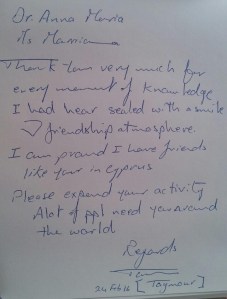 Dr. Anna Maria
Thank you very much for
every moment of knowledge
I had hear sealed with a smile
friendship atmosphere.
I am proud I have friends
like your in Cyprus
Please expend your activity
Alot of ppl need you around
the world
Regards
24 Feb 16 [Taymour]